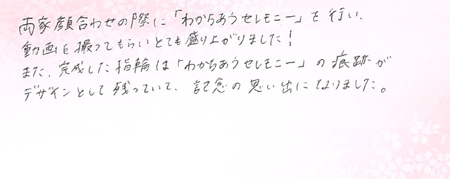 両家顔合わせの際に「わからあうセレモニー」を行い、
動画を撮ってもらいとても盛り上がりました！
また、完成した指輪は「わからあうセレモニー」の痕跡が
デザインとして残っていて、記念の思い出になりました。